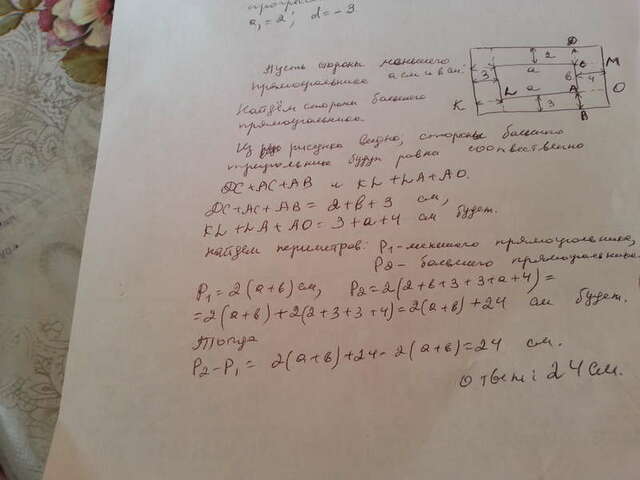 a₁ = 2; d = -3
Пусть стороны меньшего
прямоугольника a см и в см.
Найдём стороны большего
прямоугольника.
D
2
a
C
M
3
в
4
L
a
A
O
K
3
B
Из рисунка видно, стороны большего
будут равна соотвественно
DC + AC + AB и KL + LA + AO.
DC + AC + AB = 2 + в + 3 см,
KL + LA + AO = 3 + a + 4 см будет.
Найдем периметров: P₁ - меньшего прямоугольника,
P₂ - большего прямоугольника.
P₁ = 2(a+в) см, P₂ = 2(2+в+3+3+a+4) =
= 2(a+в) + 2(2+3+3+4) = 2(a+в) + 24 см будет.
Тогда
P₂ - P₁ = 2(a+в) + 24 - 2(a+в) = 24 см.
Ответ: 24 см.